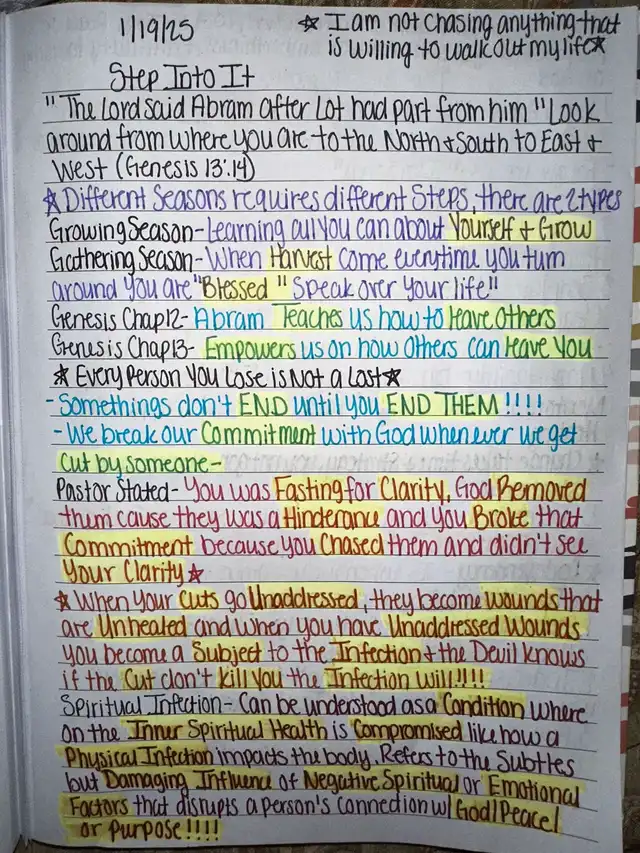 1/19/25
☆ I am not chasing anything that
is willing to walk out my life☆
Step Into It
"The Lord said Abram after Lot had part from him "Look
around from where you are to the North & South to East &
West (Genesis 13:14)
☆ Different Seasons requires different Steps, there are 2 types
Growing Season - Learning all you can about Yourself & Grow
Gathering Season - When Harvest come everytime you turn
around you are "Blessed" Speak over your life"
Genesis Chap 12 - Abram Teaches us how to leave Others
Genesis Chap 13 - Empowers us on how Others can leave You
☆ Every Person You Lose is Not a Lost☆
- Somethings don't END until you END THEM !!!!
- We break our Commitment with God whenever we get
cut by someone -
Pastor Stated - You was Fasting for Clarity, God Removed
them cause they was a Hinderance and you Broke that
Commitment because you Chased them and didn't see
your Clarity☆
☆ When your cuts go Unaddressed, they become wounds that
are Unhealed and when you have Unaddressed Wounds
you become a Subject to the Infection & the Devil knows
if the Cut don't kill you the Infection will!!!!
Spiritual Infection - Can be understood as a Condition where
on the Inner Spiritual Health is Compromised like how a
Physical Infection impacts the body. Refers to the Subtles
but Damaging Influence of Negative Spiritual or Emotional
Factors that disrupts a person's connection w/ God/Peace/
or Purpose!!!!